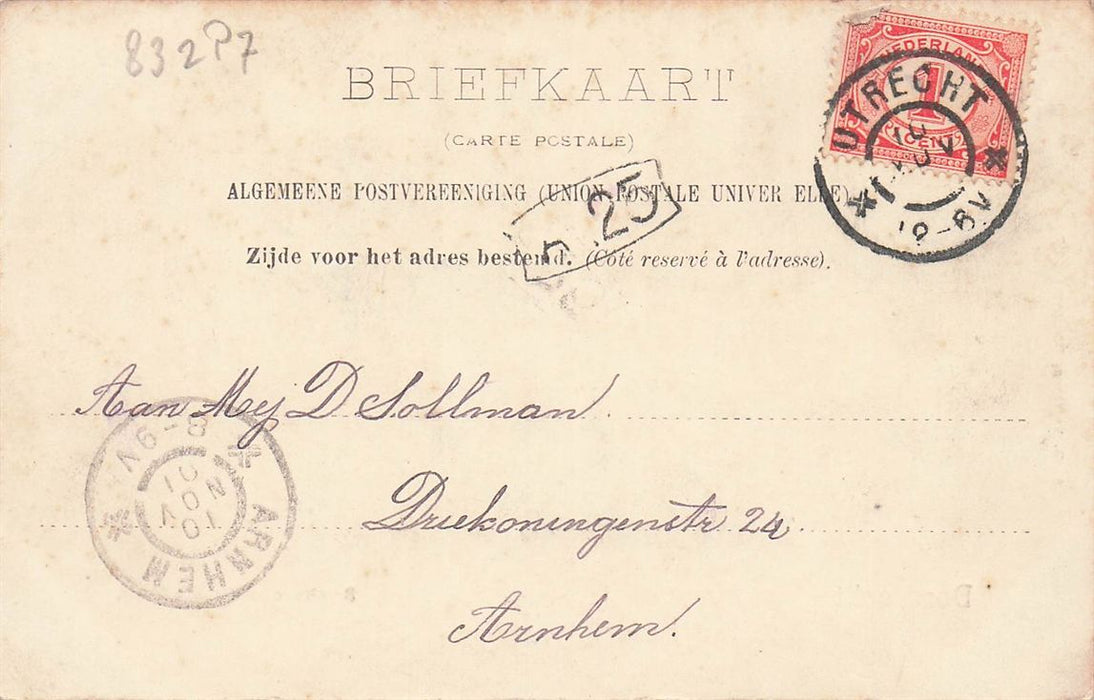 832P7
BRIEFKAART
(CARTE POSTALE)
ALGEMEENE POSTVEREENIGING (UNION POSTALE UNIVER ELLE)
Zijde voor het adres bestemd. (Coté reservé à l'adresse).
25
NEDERLAND
1
CENT
UTRECHT
10
NOV
Aan Mej D Sollman
Driekoningenstr 24
Arnhem.
8-9V
10
NOV
01
ARNHEM